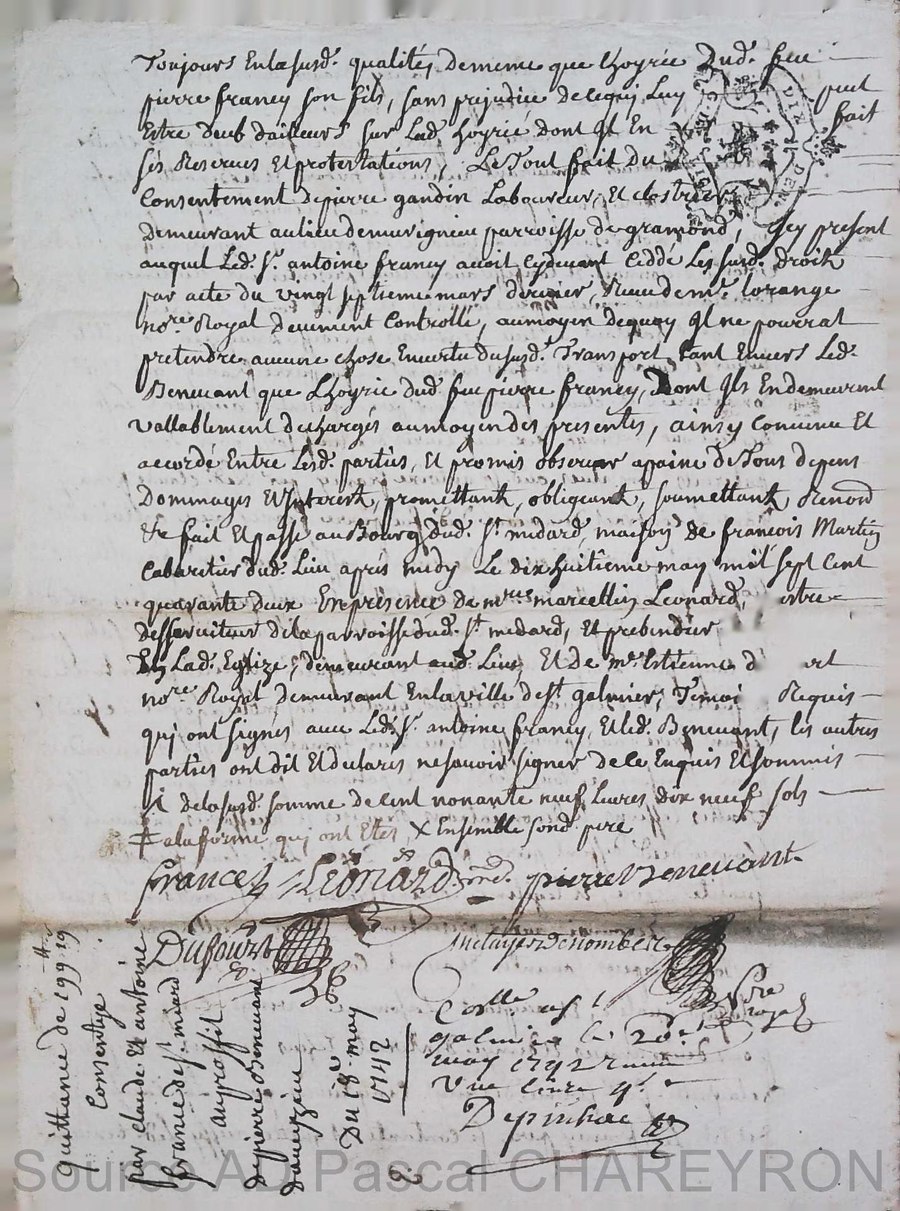 Toujours Enlasusd. qualité, dememe que Lhoyrie Dud. feu
pierre francey son fils, sans prejudice delequi Luy peut
Estre deub dailleurs sur Lad. hoyrié dont Il En fait
sés Reserves Et protestations, Le Tout fait Du
Consentement depierre gandin Laboureur, Et
demeurant aulieu demurigneu parroisse de gramond, Icy present
auquel Led. Sr. antoine francey avoit Cydevant Ceddé Les susd. droits
par acte du vingt septieme mars dernier, Receu de me. lorange
nore. Royal deuement Controllé, aumoyen dequoy Il ne pourrat
pretendre aucune chose Envertu dususd. Transport tant Envers Led.
Benevant que Lhoyrie dud. feu pierre francey, Dont Ils Endemeurent
vallablement dechargés aumoyen des presentes, ainsy Convenu Et
accordé Entre Lesd. parties, Et promis observer apaine deTous depens
Dommages Et Interest, promettant, obligeant, soumettant, Renond
&c fait Et passé au Bourg dud. St. midard, maison de francois Martin
Cabaretier dud. Lieu aprés midy Le dix huitieme may mil sept Cent
quarante deux En presence de mre marcellin Leonard,
desserviteur delaparroisse dud. St. medard, Et prebendier
En Lad. Eglize, demeurant aud. Lieu, Et de me. Estienne
nore. Royal demeurant Enlaville de St. galmier, Requis
qui ont signés avec Led. Sr. antoine francey, Et led. Benevant, les autres
parties ont dit Et declarés ne savoir signer de ce Enquis Et sommés
delasusd. somme decent nonante neuf Livres dix neuf sols
# alaforme qui ont Etes X Ensemble sond. pere
francey Leonard pierre Benevant
Dufourt
nore royal
galmier le 20e.
may 1742
une livre 4s.
Depinhac
quittance de 199 ₶ 19
Consentye
par claude Et antoine
france de St. midard
auproffit
depierre Benevant
Du 18e may
1742